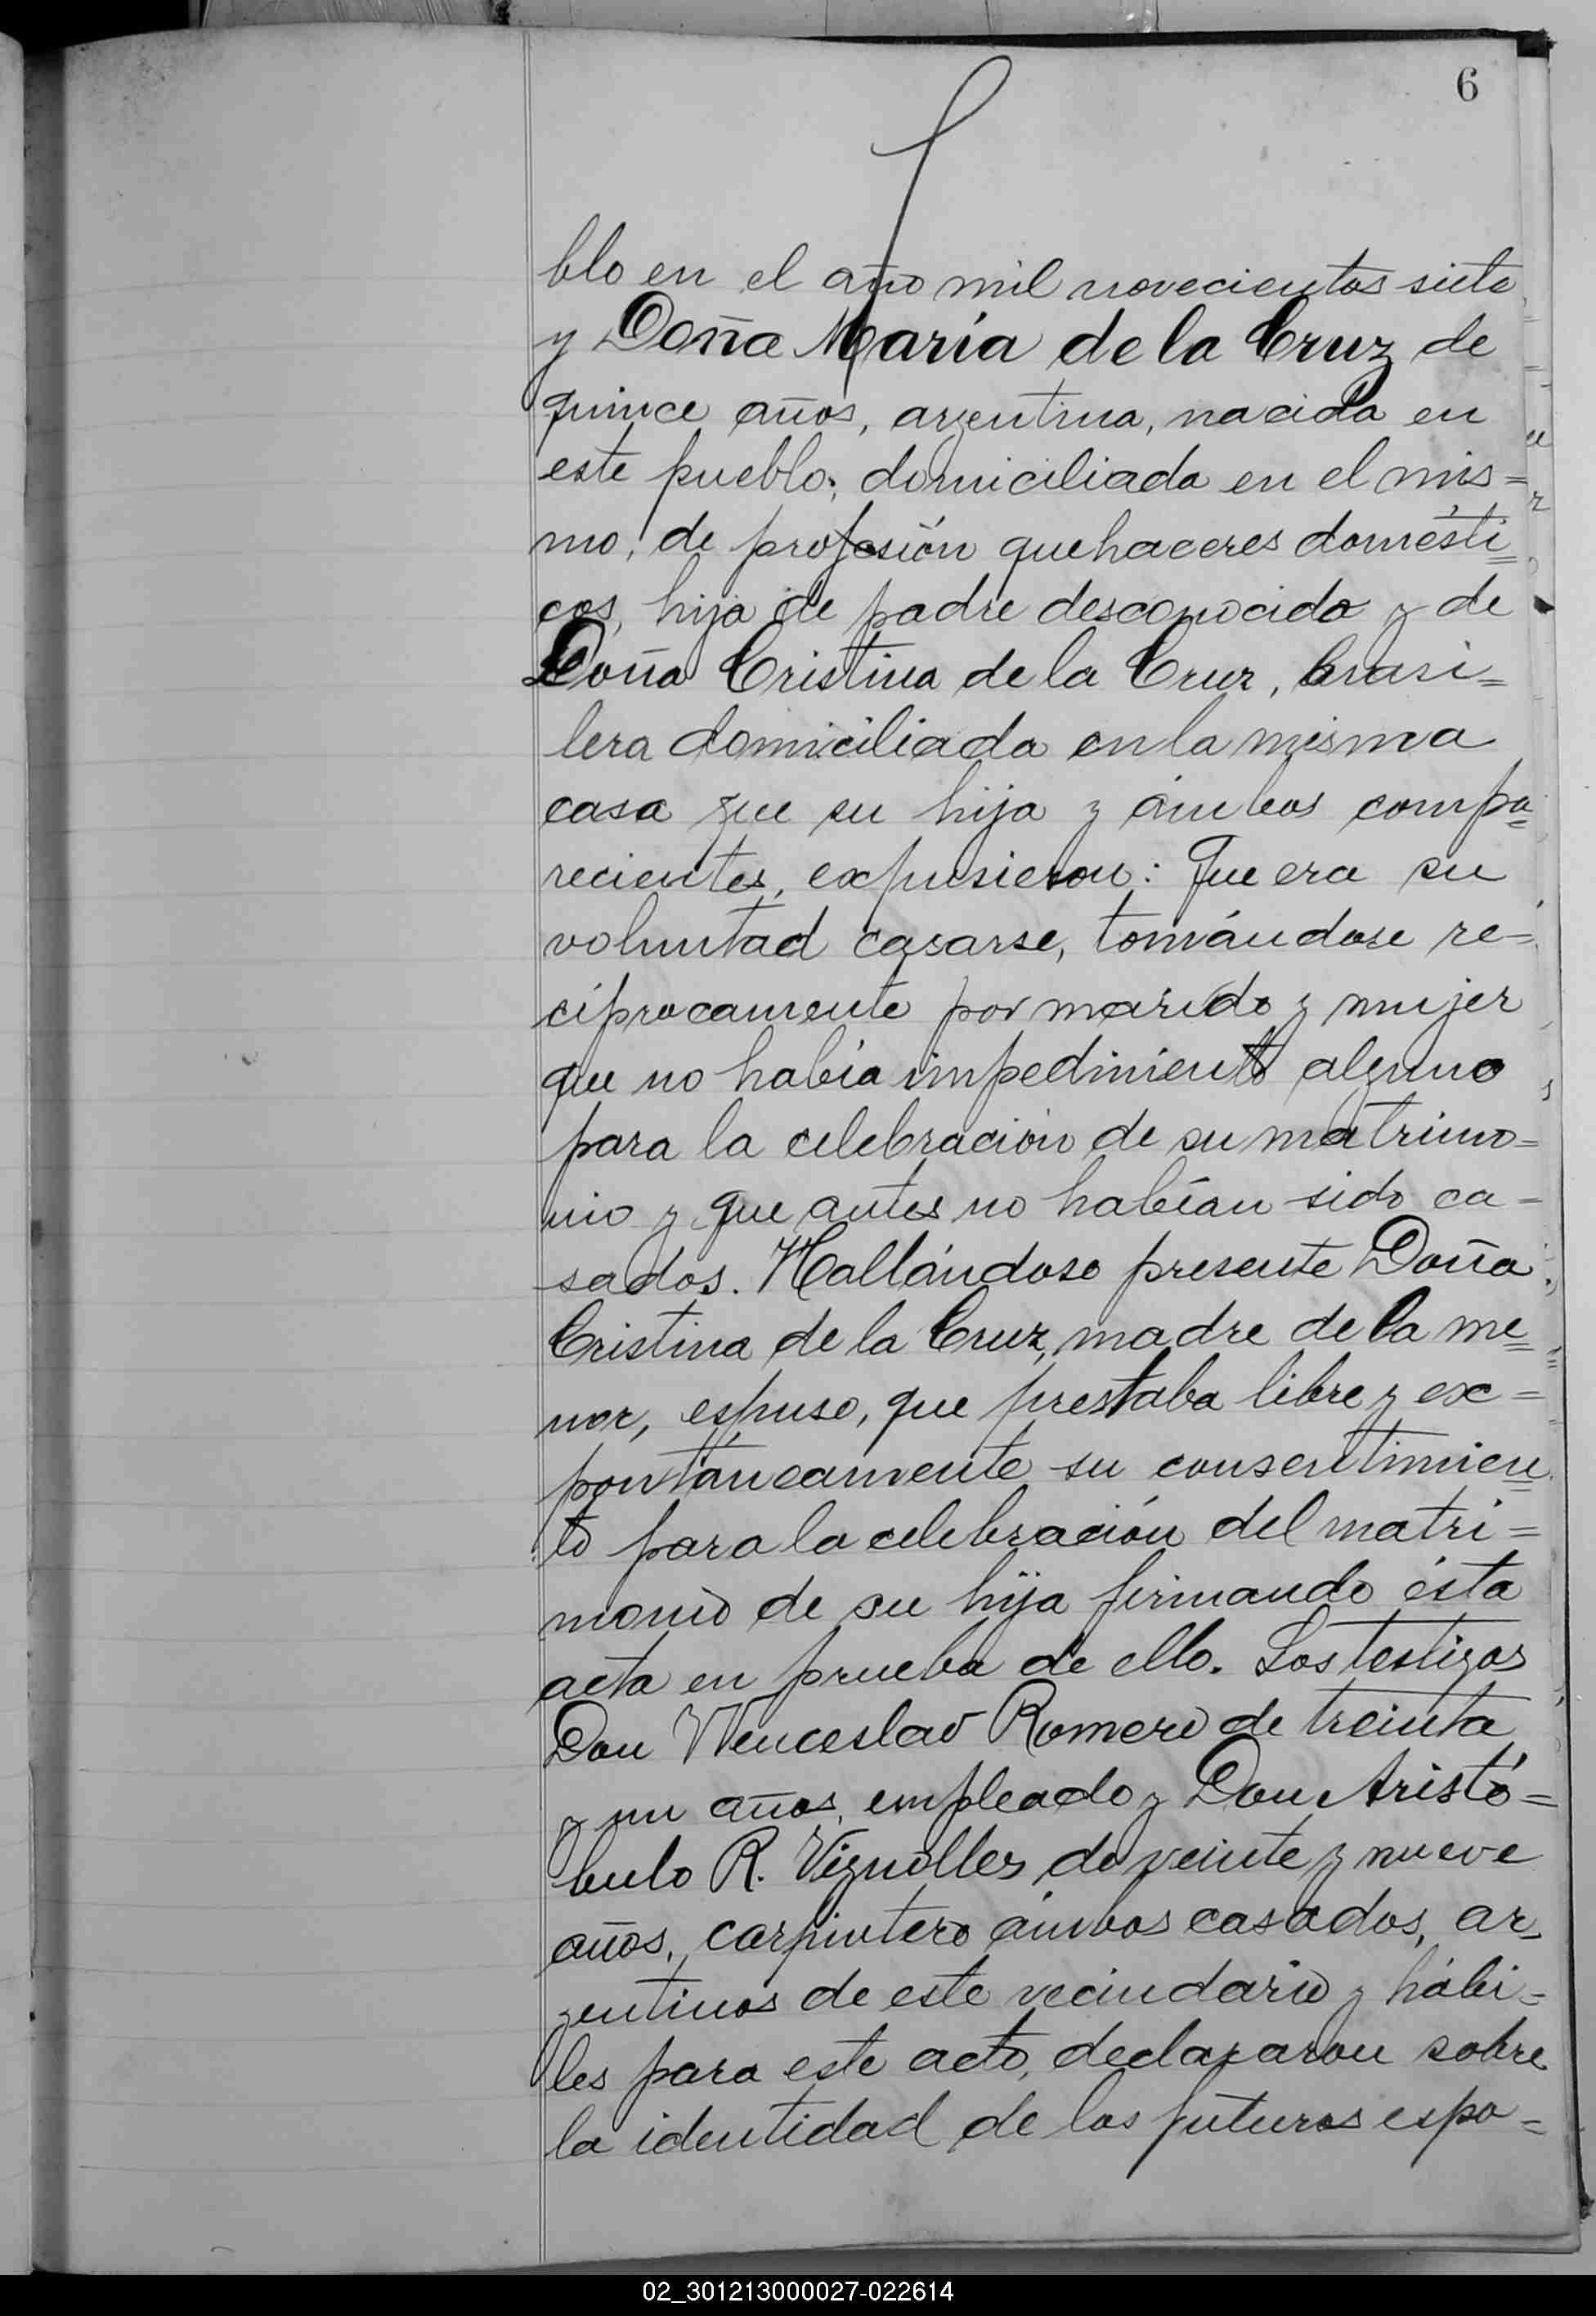 6
blo en el año mil novecientos siete
y Doña María de la Cruz de
quince años, argentina, nacida en
este pueblo, domiciliada en el mis=
mo, de profesión quehaceres domésti=
cos, hija de padre desconocido y de
Doña Cristina de la Cruz, brasi=
lera domiciliada en la misma
casa que su hija y ámbos compa=
recientes, expusieron: Que era su
voluntad casarse, tomándose re=
cíprocamente por marido y mujer
que no había impedimiento alguno
para la celebración de su matrimo=
nio y que antes no habían sido ca=
sados. Hallándose presente Doña
Cristina de la Cruz, madre de la me=
nor, espuso, que prestaba libre y ex=
pontáneamente su consentimien=
to para la celebración del matri=
monio de su hija firmando ésta
acta en prueba de ello. Los testigos
Don Wenceslao Romero de treinta
y un años, empleado y Don Aristó=
bulo R. Vignolles de veinte y nueve
años, carpintero ámbos casados, ar=
gentinos de este vecindario y hábi=
les para este acto, declararon sobre
la identidad de los futuros espo=
02_301213000027-022614